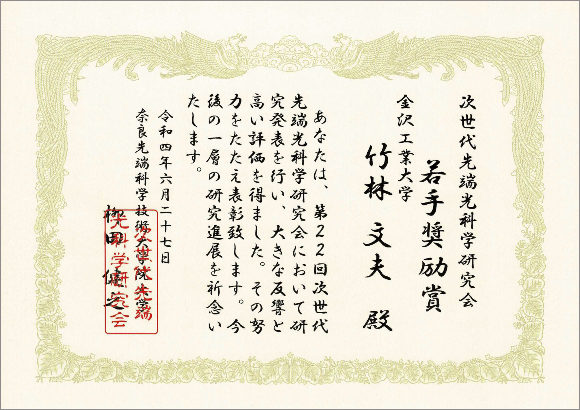 次世代先端光科学研究会
若手奨励賞
金沢工業大学
竹林 文夫 殿
あなたは、第２２回次世代
先端光科学研究会において研
究発表を行い、大きな反響と
高い評価を得ました。その努
力をたたえ表彰致します。今
後の一層の研究進展を祈念い
たします。
令和四年六月二十七日
奈良先端科学技術大学院大学
柳田 健之
次世代先端
光科学研究会